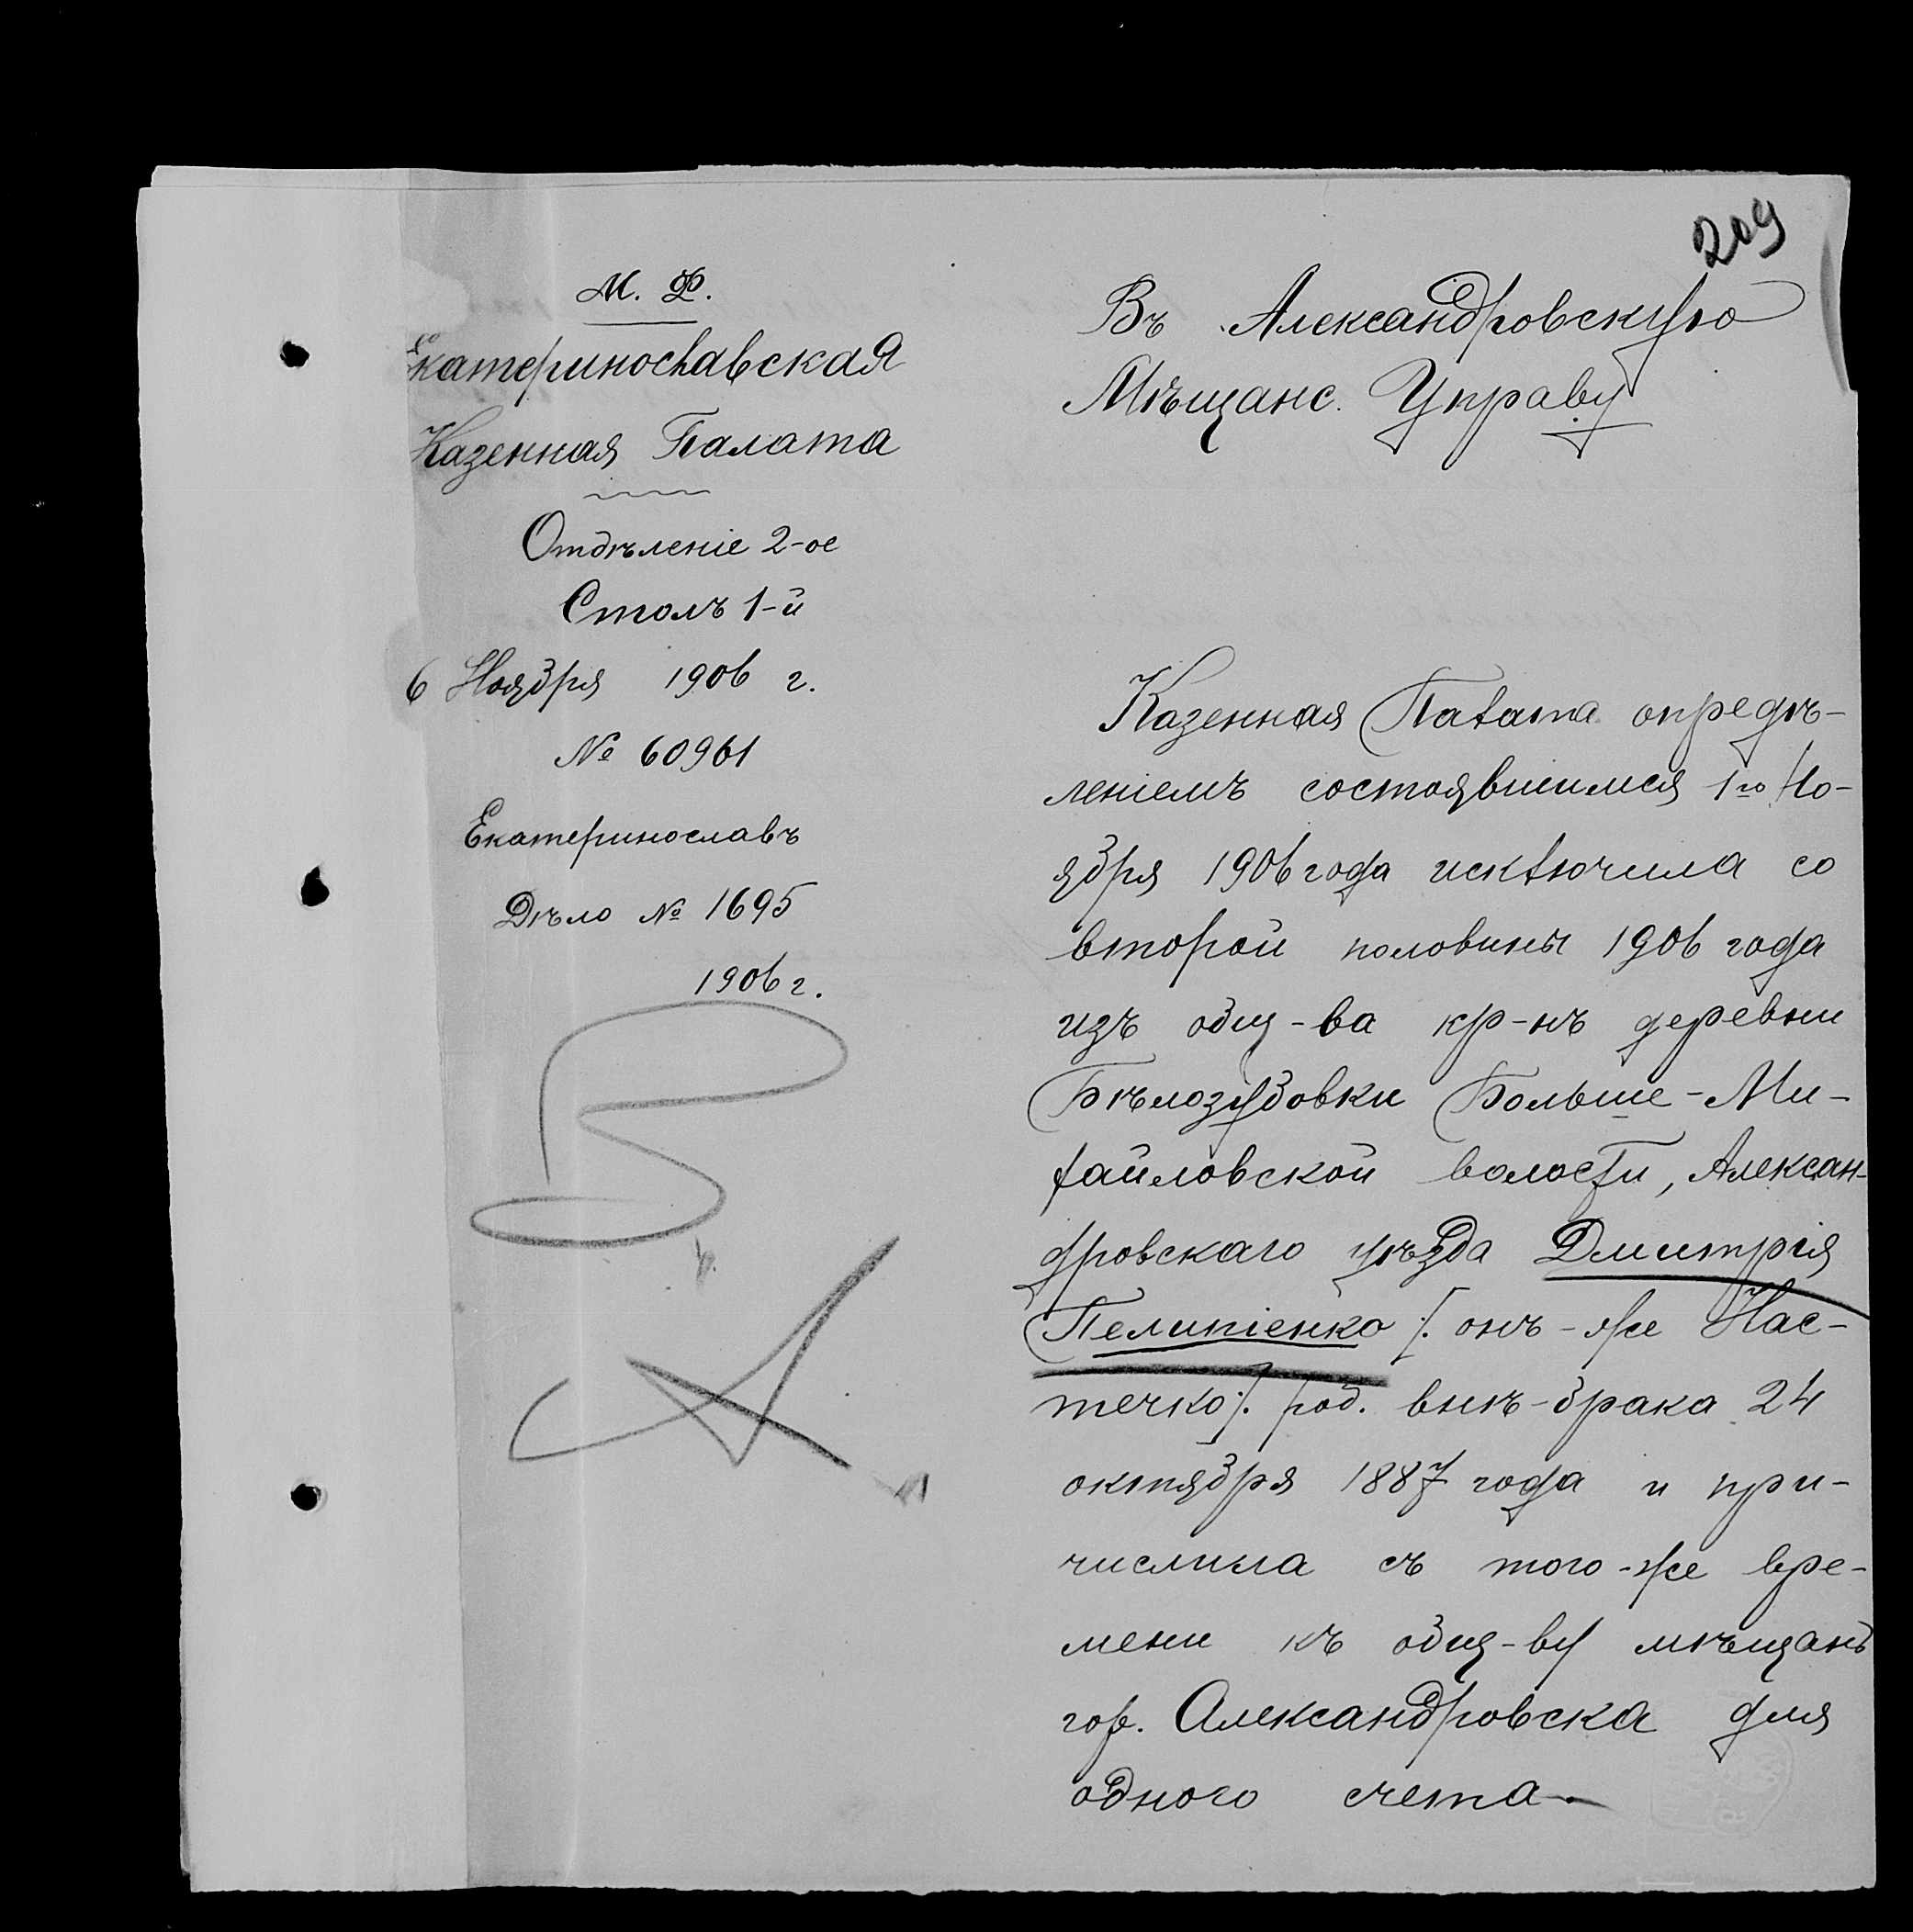 209
М. Ф.
Екатеринославская
Казенная Палата
Отдѣленіе 2-ое
Столъ 1-й
6 Ноября 1906 г.
№ 60961
Екатеринославъ
Дѣло № 1695
1906 г.
Въ Александровскую
Мѣщанс. Управу
Казенная Палата опредѣ-
леніемъ состоявшимся 1го Но-
ября 1906 года исключила со
второй половины 1906 года
изъ общ-ва кр-нъ деревни
Бѣлозубовки Больше-Ми-
хайловской волости, Алексан-
дровскаго уѣзда Дмитрія
Пелипіенко /. онъ-же Нас-
течко ./. род. внѣ-брака 24
октября 1887 года и при-
числила съ того-же вре-
мени къ общ-ву мѣщанъ
гор. Александровска для
одного счета.